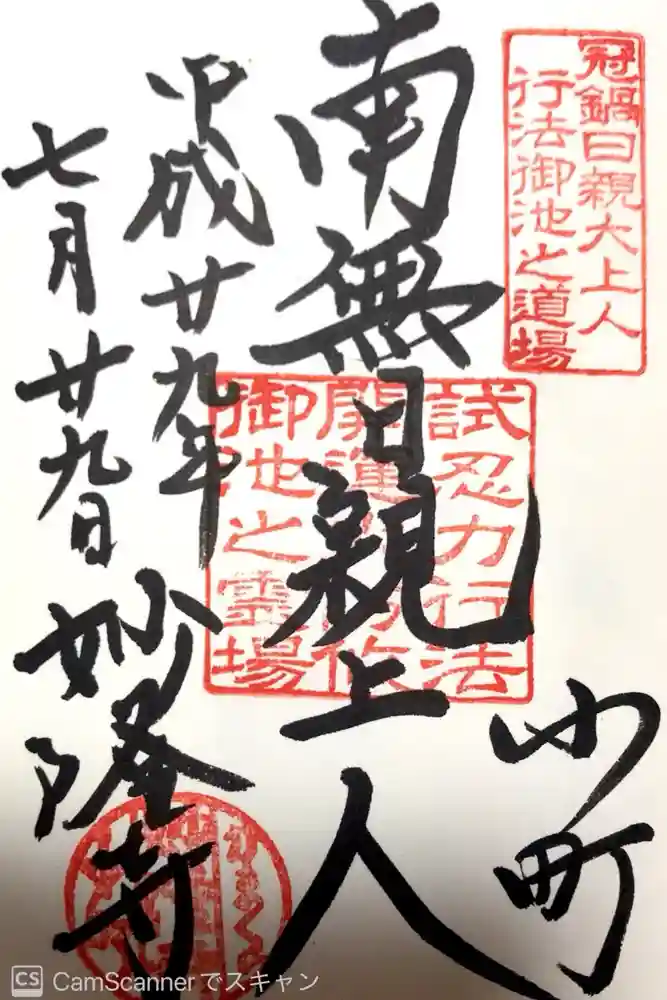 冠鍋日親大上人
行法御池之道場
小町
南無日親上人
試忍力行法
開運
御池之霊場
平成廿九年
七月廿九日
妙隆寺
CamScannerでスキャン